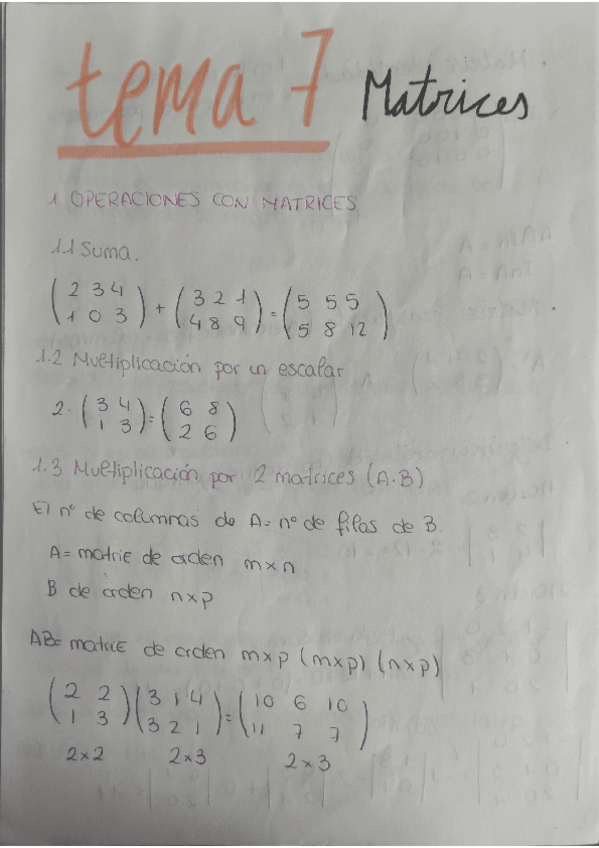 tema 7 Matrices
1 OPERACIONES CON MATRICES
1.1 Suma.
(2 3 4 / 1 0 3) + (3 2 1 / 4 8 9) = (5 5 5 / 5 8 12)
1.2 Multiplicación por un escalar
2. (3 4 / 1 3) = (6 8 / 2 6)
1.3 Multiplicación por 2 matrices (A.B)
El nº de columnas de A = nº de filas de B.
A = matriz de orden m×n
B de orden n×p
AB = matriz de orden m×p (m×p) (n×p)
(2 2 / 1 3) (3 1 4 / 3 2 1) = (10 6 10 / 11 7 7)
2×2 2×3 2×3